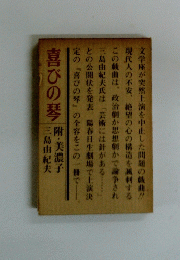 文学座が突然上演を中止した問題の戯曲!
現代人の不安、絶望の心の構造を諷刺する
この戯曲は、政治劇か思想劇かで論争され
三島由紀夫氏は「芸術には針がある……」
との公開状を発表 陽春日生劇場で上演決
定の『喜びの琴』の全容をこの一冊で――
喜びの琴
附・美濃子
三島由紀夫